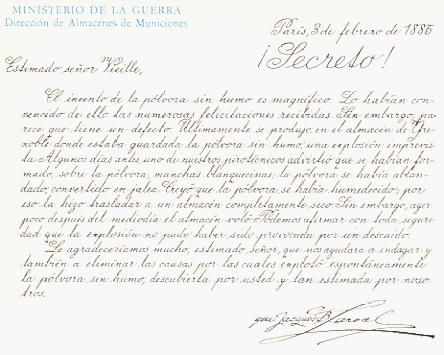 MINISTERIO DE LA GUERRA
Dirección de Almacenes de Municiones
París, 3 de febrero de 1886
¡Secreto!
Estimado señor Vieille,
El invento de la pólvora sin humo es magnífico. Lo habían con-
vencido de ello las numerosas felicitaciones recibidas. Sin embargo, pa-
rece que tiene un defecto. Últimamente se produjo, en el almacén de Gre-
noble donde estaba guardada la pólvora sin humo, una explosión imprevis-
ta. Algunos días antes, uno de nuestros pirotécnicos advirtió que se habían for-
mado, sobre la pólvora, manchas blanquecinas; la pólvora se había ablan-
dado, convertido en jalea. Creyó que la pólvora se había humedecido; por
eso la hizo trasladar a un almacén completamente seco. Sin embargo, ayer
poco después del mediodía el almacén voló. Podemos afirmar con toda segur
dad que la explosión no pudo haber sido provocada por un descuido.
Le agradeceríamos mucho, estimado señor, que nos ayudara a indagar y
también a eliminar las causas por las cuales explotó espontáneamente
la pólvora sin humo, descubierta por usted y tan estimada por noso-
tros.
Jacques